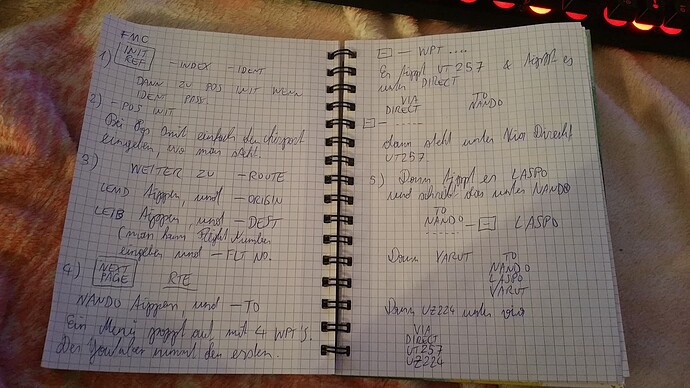 FMC
1) INIT REF - INDEX - IDENT
DANN ZU POS INIT WENN
IDENT PASS.
2) - POS INIT
Bei Pos Init einfach den Airport
eingeben, wo man steht.
3) WEITER ZU - ROUTE
LEMD tippen, und - ORIGIN
LEIB tippen, und - DEST
(man kann Flight Number
eingeben und - FLT NO.
4.) NEXT PAGE RTE
NANDO tippen, und - TO
Ein Menü poppt auf mit 4 WPT's.
Der Youtuber nimmt den ersten.
- WPT ....
Er tippt UT257 & tippt es
unter DIRECT
VIA TO
DIRECT NANDO
- ......
dann steht unter Via Direct
UT257.
5.) Dann tippt er LASPO
und schreibt das unter NANDO
TO
NANDO
...... - LASPO
Dann VARUT TO
NANDO
LASPO
VARUT
Dann UZ224 unter via
VIA
DIRECT
UT257
UZ224